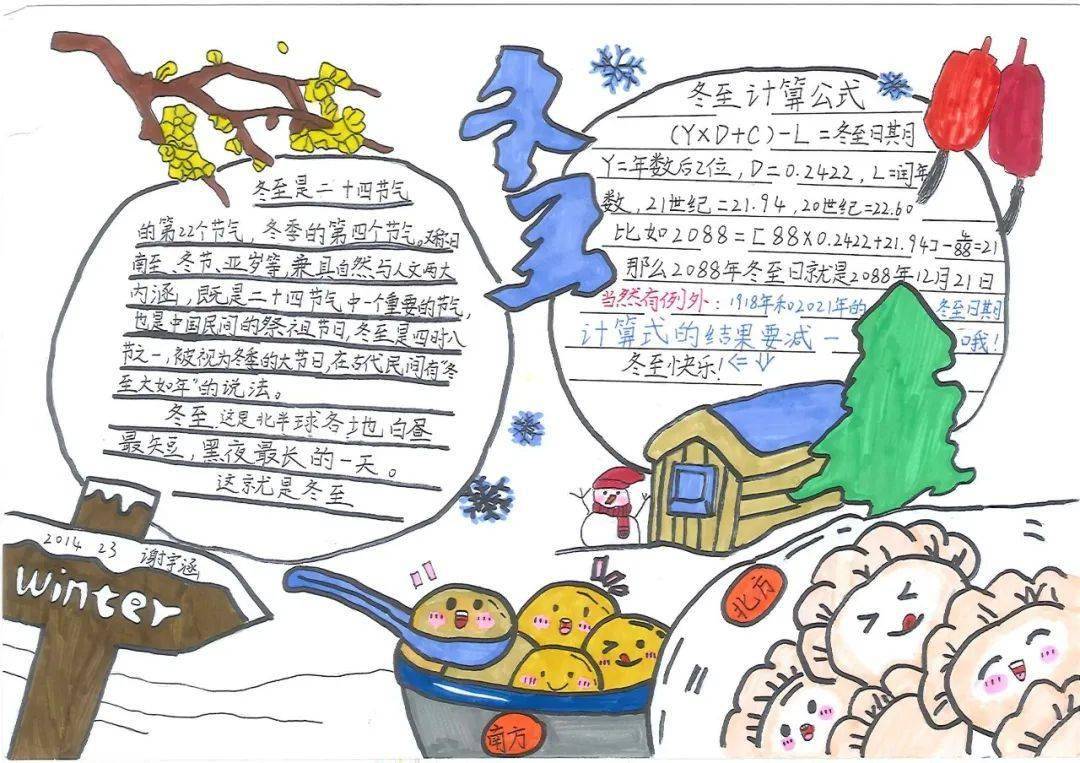 冬至
冬至是二十四节气
的第22个节气，冬季的第四个节气。又称日
南至、冬节、亚岁等，兼具自然与人文两大
内涵，既是二十四节气中一个重要的节气，
也是中国民间的祭祖节日，冬至是四时八
节之一，被视为冬季的大节日，在古代民间有“冬
至大如年”的说法。
冬至这是北半球各地白昼
最短，黑夜最长的一天。
这就是冬至
冬至计算公式
(Y×D+C)-L=冬至日期
Y=年数后2位，D=0.2422，L=闰年
数，21世纪=21.94，20世纪=22.60
比如2088=[88×0.2422+21.94]-
=21
那么2088年冬至日就是2088年12月21日
当然有例外：1918年和2021年的 冬至日期
计算式的结果要减一 哦！
冬至快乐！
2014 23 谢宇涵
Winter
南方
北方